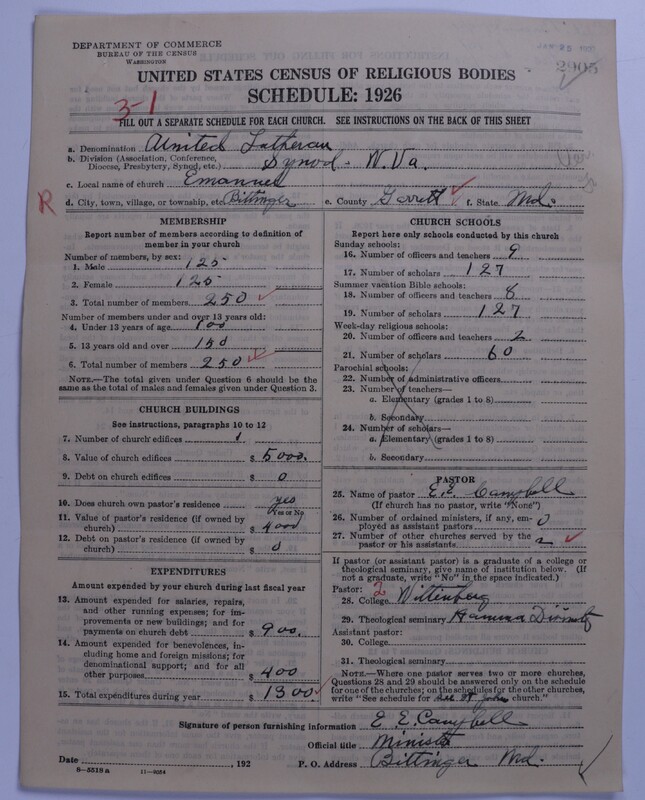 DEPARTMENT OF COMMERCE
BUREAU OF THE CENSUS
WASHINGTON
2905
UNITED STATES CENSUS OF RELIGIOUS BODIES
SCHEDULE: 1926
3-1
FILL OUT A SEPARATE SCHEDULE FOR EACH CHURCH. SEE INSTRUCTIONS ON THE BACK OF THIS SHEET
a. Denomination United Lutheran
b. Division (Association, Conference, Diocese, Presbytery, Synod, etc.) Synod - W. Va.
c. Local name of church Emanuel
R
d. City, town, village, or township, etc. Bittinger e. County Garrett f. State Md.
MEMBERSHIP
Report number of members according to definition of
member in your church
Number of members, by sex:
1. Male 125
2. Female 125
3. Total number of members 250
Number of members under and over 13 years old:
4. Under 13 years of age 100
5. 13 years old and over 150
6. Total number of members 250
NOTE.—The total given under Question 6 should be the
same as the total of males and females given under Question 3.
CHURCH BUILDINGS
See instructions, paragraphs 10 to 12
7. Number of church edifices 1
8. Value of church edifices $ 5000.
9. Debt on church edifices $ 0
10. Does church own pastor's residence yes
Yes or No
11. Value of pastor's residence (if owned by
church) $ 4000
12. Debt on pastor's residence (if owned by
church) $ 0
EXPENDITURES
Amount expended by your church during last fiscal year
13. Amount expended for salaries, repairs,
and other running expenses; for im-
provements or new buildings; and for
payments on church debt $ 900.
14. Amount expended for benevolences, in-
cluding home and foreign missions; for
denominational support; and for all
other purposes $ 400
15. Total expenditures during year $ 1300
CHURCH SCHOOLS
Report here only schools conducted by this church
Sunday schools:
16. Number of officers and teachers 9
17. Number of scholars 127
Summer vacation Bible schools:
18. Number of officers and teachers 8
19. Number of scholars 127
Week-day religious schools:
20. Number of officers and teachers 2
21. Number of scholars 60
Parochial schools:
22. Number of administrative officers
23. Number of teachers—
a. Elementary (grades 1 to 8)
b. Secondary
24. Number of scholars—
a. Elementary (grades 1 to 8)
b. Secondary
PASTOR
25. Name of pastor E. E. Campbell
(If church has no pastor, write "None")
26. Number of ordained ministers, if any, em-
ployed as assistant pastors 0
27. Number of other churches served by the
pastor or his assistants 2
If pastor (or assistant pastor) is a graduate of a college or
theological seminary, give name of institution below. (If
not a graduate, write "No" in the space indicated.)
Pastor: 2
28. College Wittenberg
29. Theological seminary Hamma Divinity
Assistant pastor:
30. College
31. Theological seminary
NOTE.—Where one pastor serves two or more churches,
Questions 28 and 29 should be answered only on the schedule
for one of the churches; on the schedules for the other churches,
write "See schedule for See St Johns church."
Signature of person furnishing information E. E. Campbell
Official title Minister
Date , 192 P. O. Address Bittinger Md.
8—5518 a 11—9054